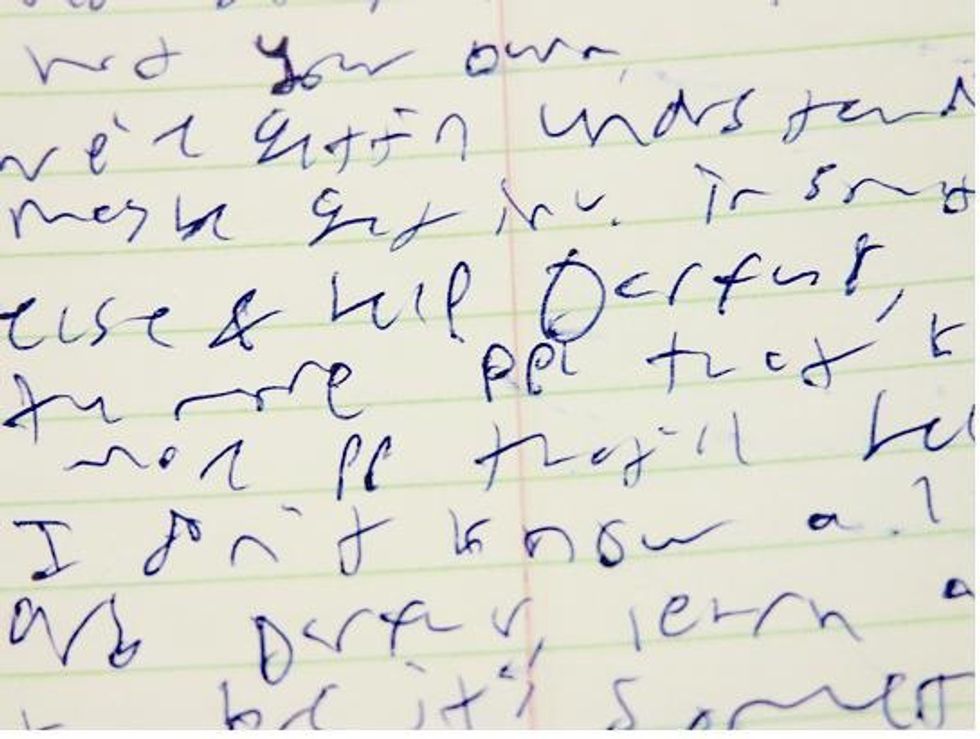 not your own
we'l gettin undrstand
maybe get inv. in smt
else & help Darfur,
the more ppl that k
more pp they'll hel
I don't know a.l
Darfur, lern a
be it's somet